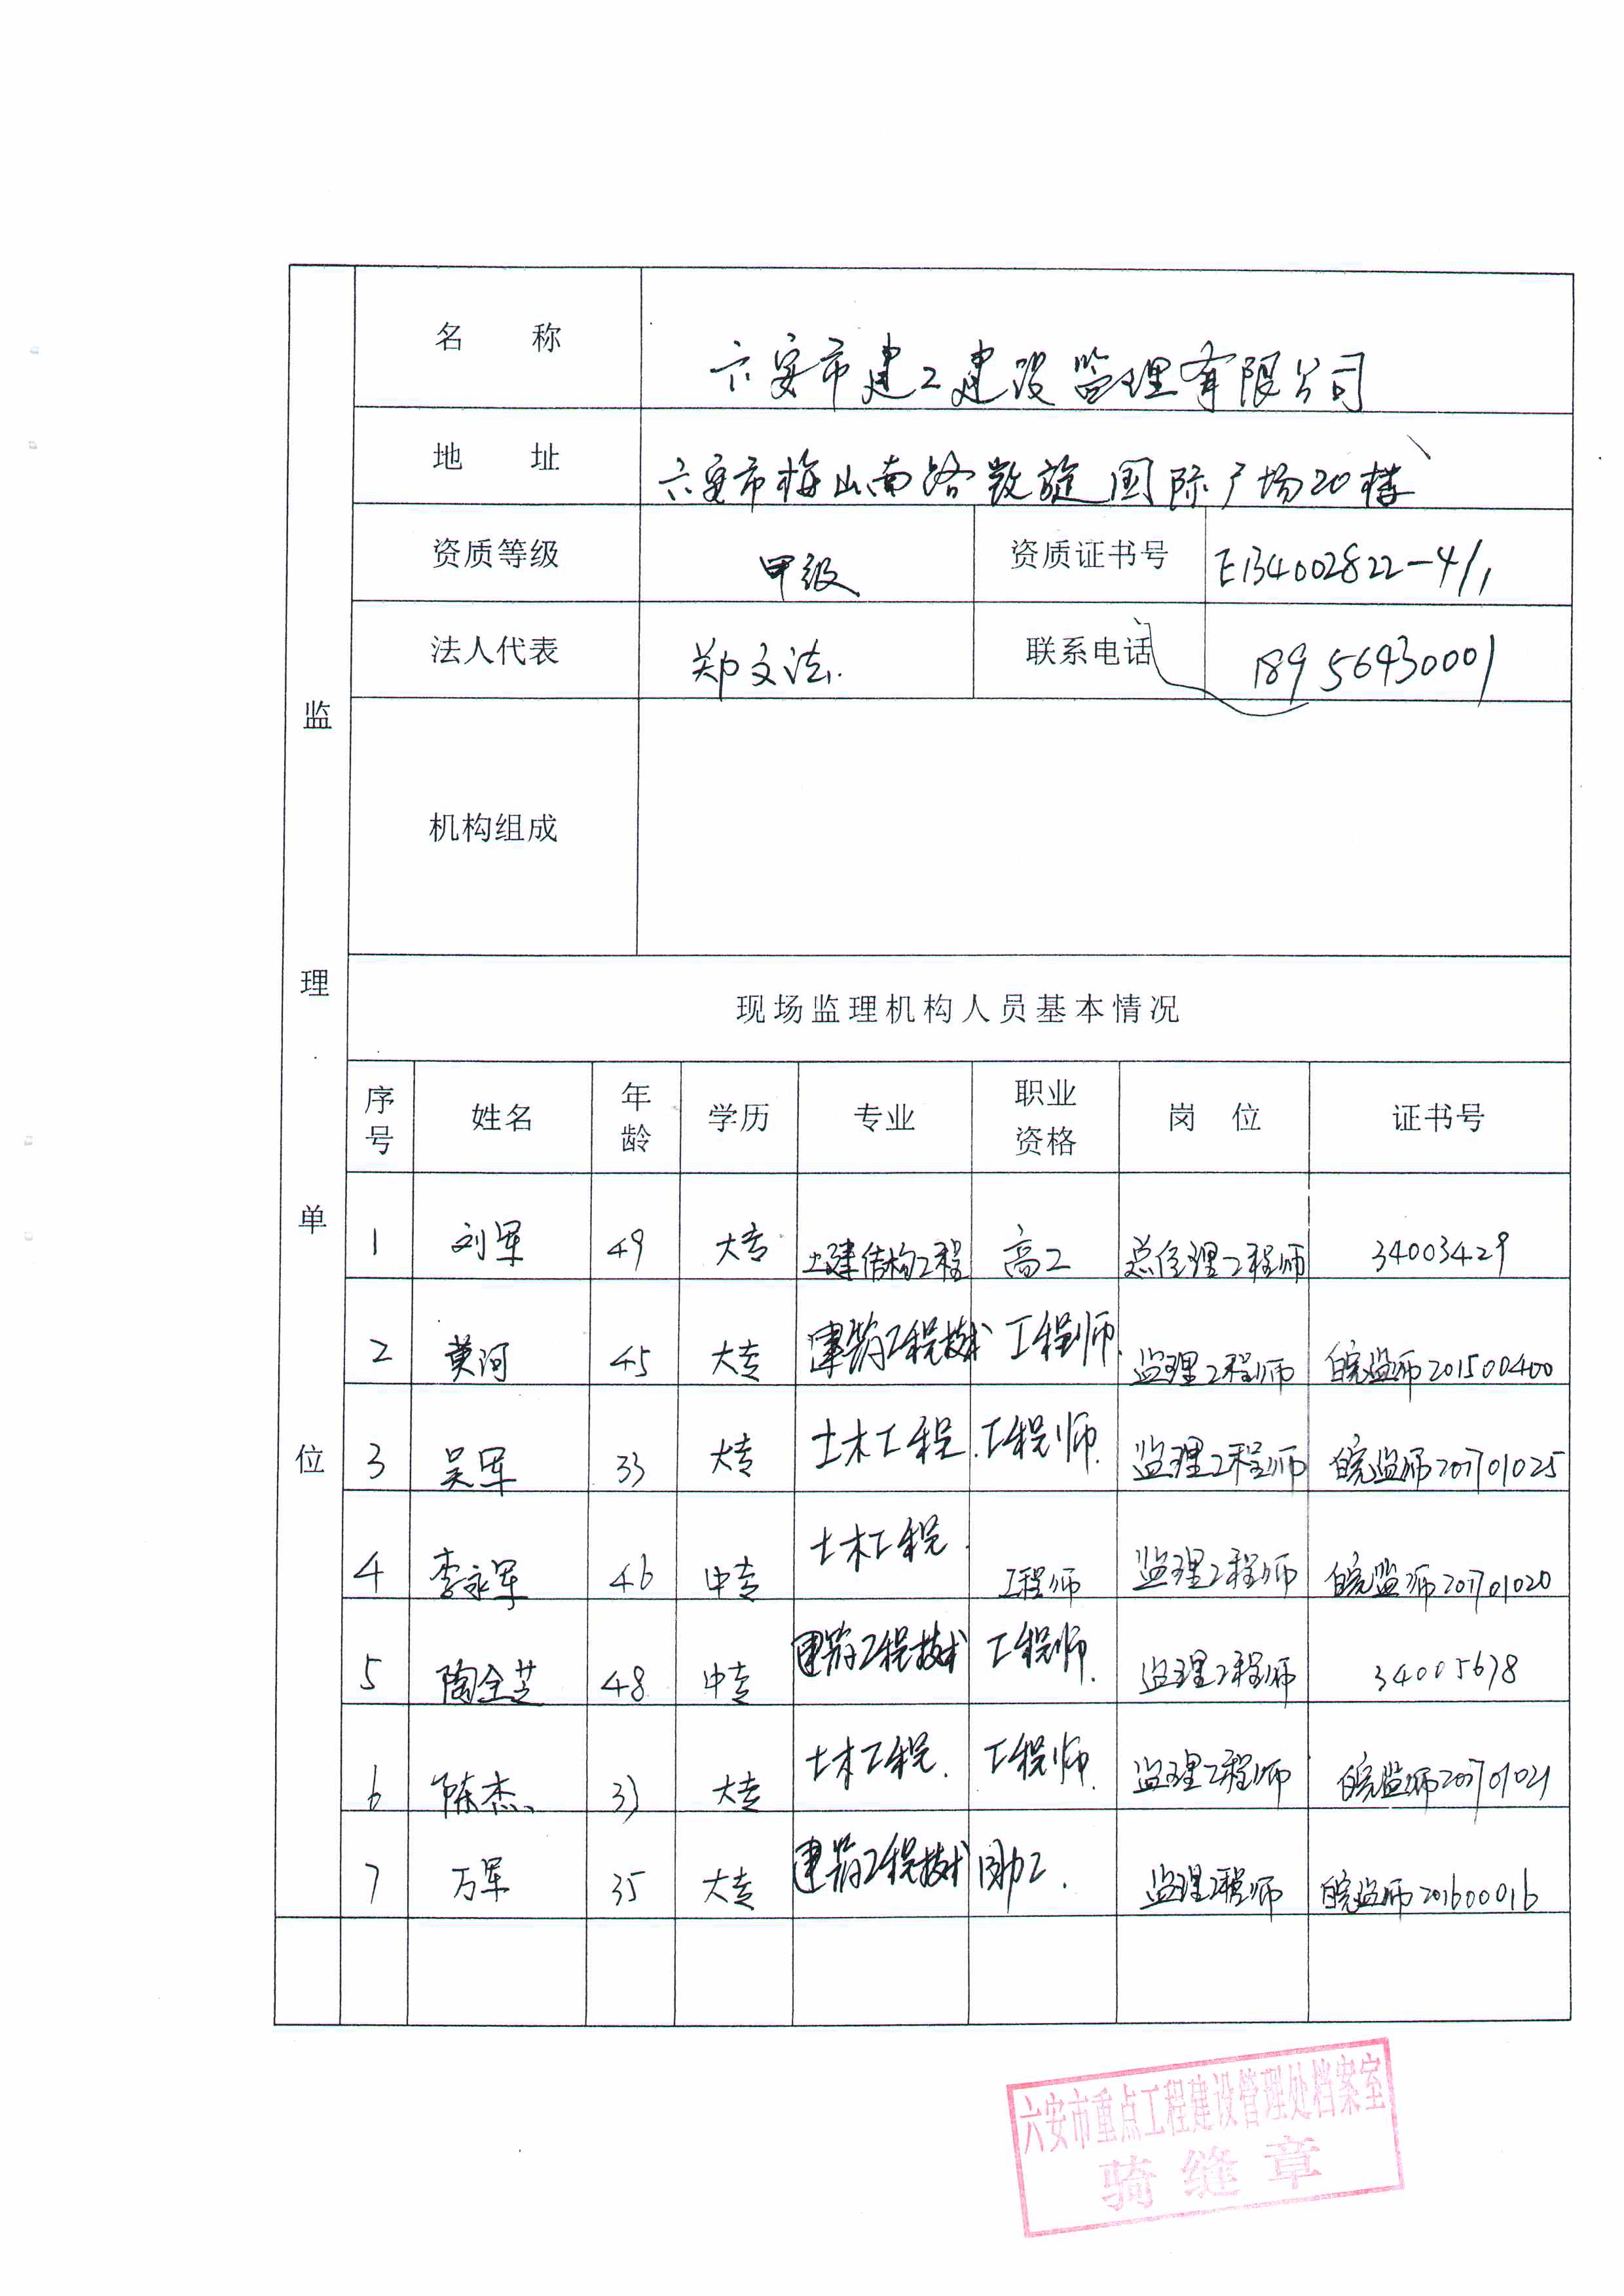 监理单位
名 称 六安市建工建设监理有限公司
地 址 六安市梅山南路数旋国际广场20楼
资质等级 甲级 资质证书号 E134002822-4/1
法人代表 郑文法 联系电话 18956430001
机构组成
现场监理机构人员基本情况
序号 姓名 年龄 学历 专业 职业资格 岗 位 证书号
1 刘军 49 大专 土建结构工程 高工 总监理工程师 34003429
2 黄河 45 大专 建筑工程技术 工程师 监理工程师 皖监师201500400
3 吴军 33 大专 土木工程 工程师 监理工程师 皖监师201701025
4 李永军 46 中专 土木工程 工程师 监理工程师 皖监师201701020
5 陶全芝 48 中专 建筑工程技术 工程师 监理工程师 34005678
6 陈杰 33 大专 土木工程 工程师 监理工程师 皖监师201701021
7 万军 35 大专 建筑工程技术 助工 监理工程师 皖监师201600016
六安市重点工程建设管理处档案室
骑缝章